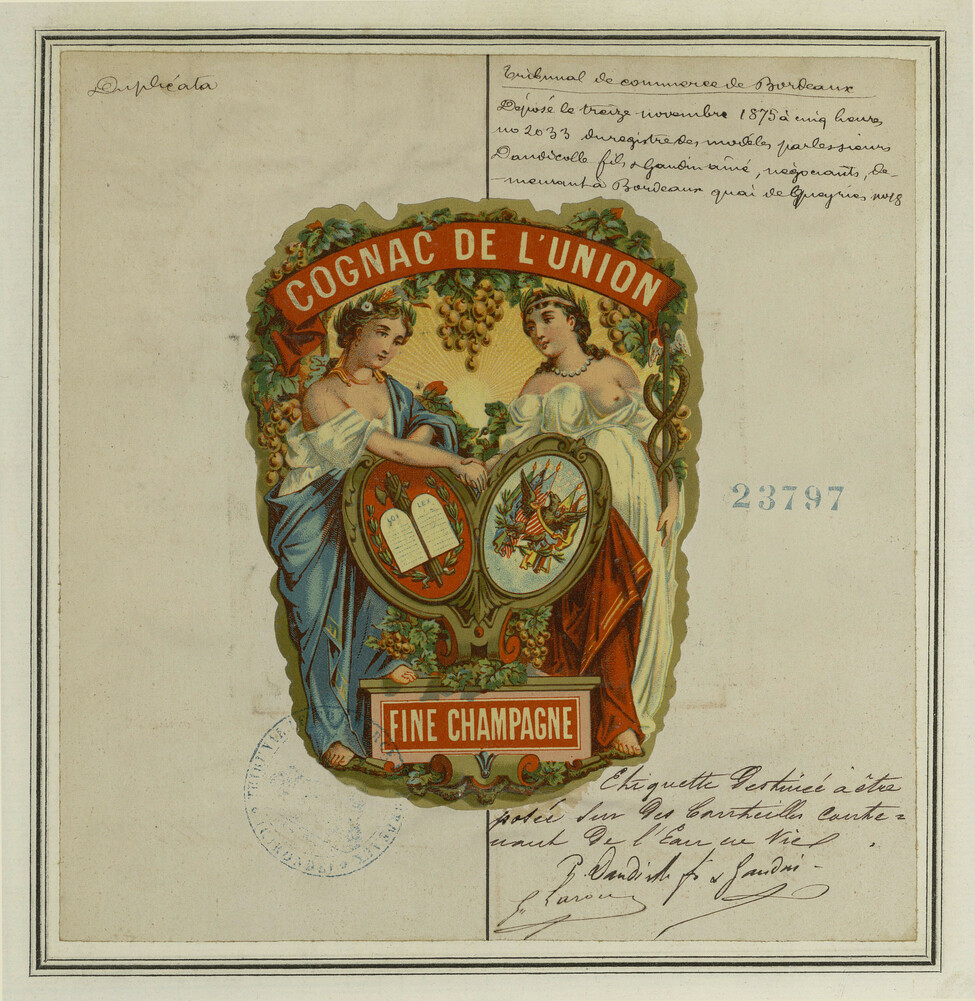 Duplicata
Tribunal de commerce de Bordeaux
Déposé le treize novembre 1875 à cinq heures
no 2033 du registre des modèles par lessieurs
Dandicolle fils & Gaudin aîné, négociants, de-
meurant à Bordeaux quai de Queyries no 18
COGNAC DE L'UNION
LOI LEX
23797
FINE CHAMPAGNE
Etiquette Destinée à être
posée sur des Bouteilles conte=
nant De l'Eau de Vie
P. Dandicolle fs & Gaudin